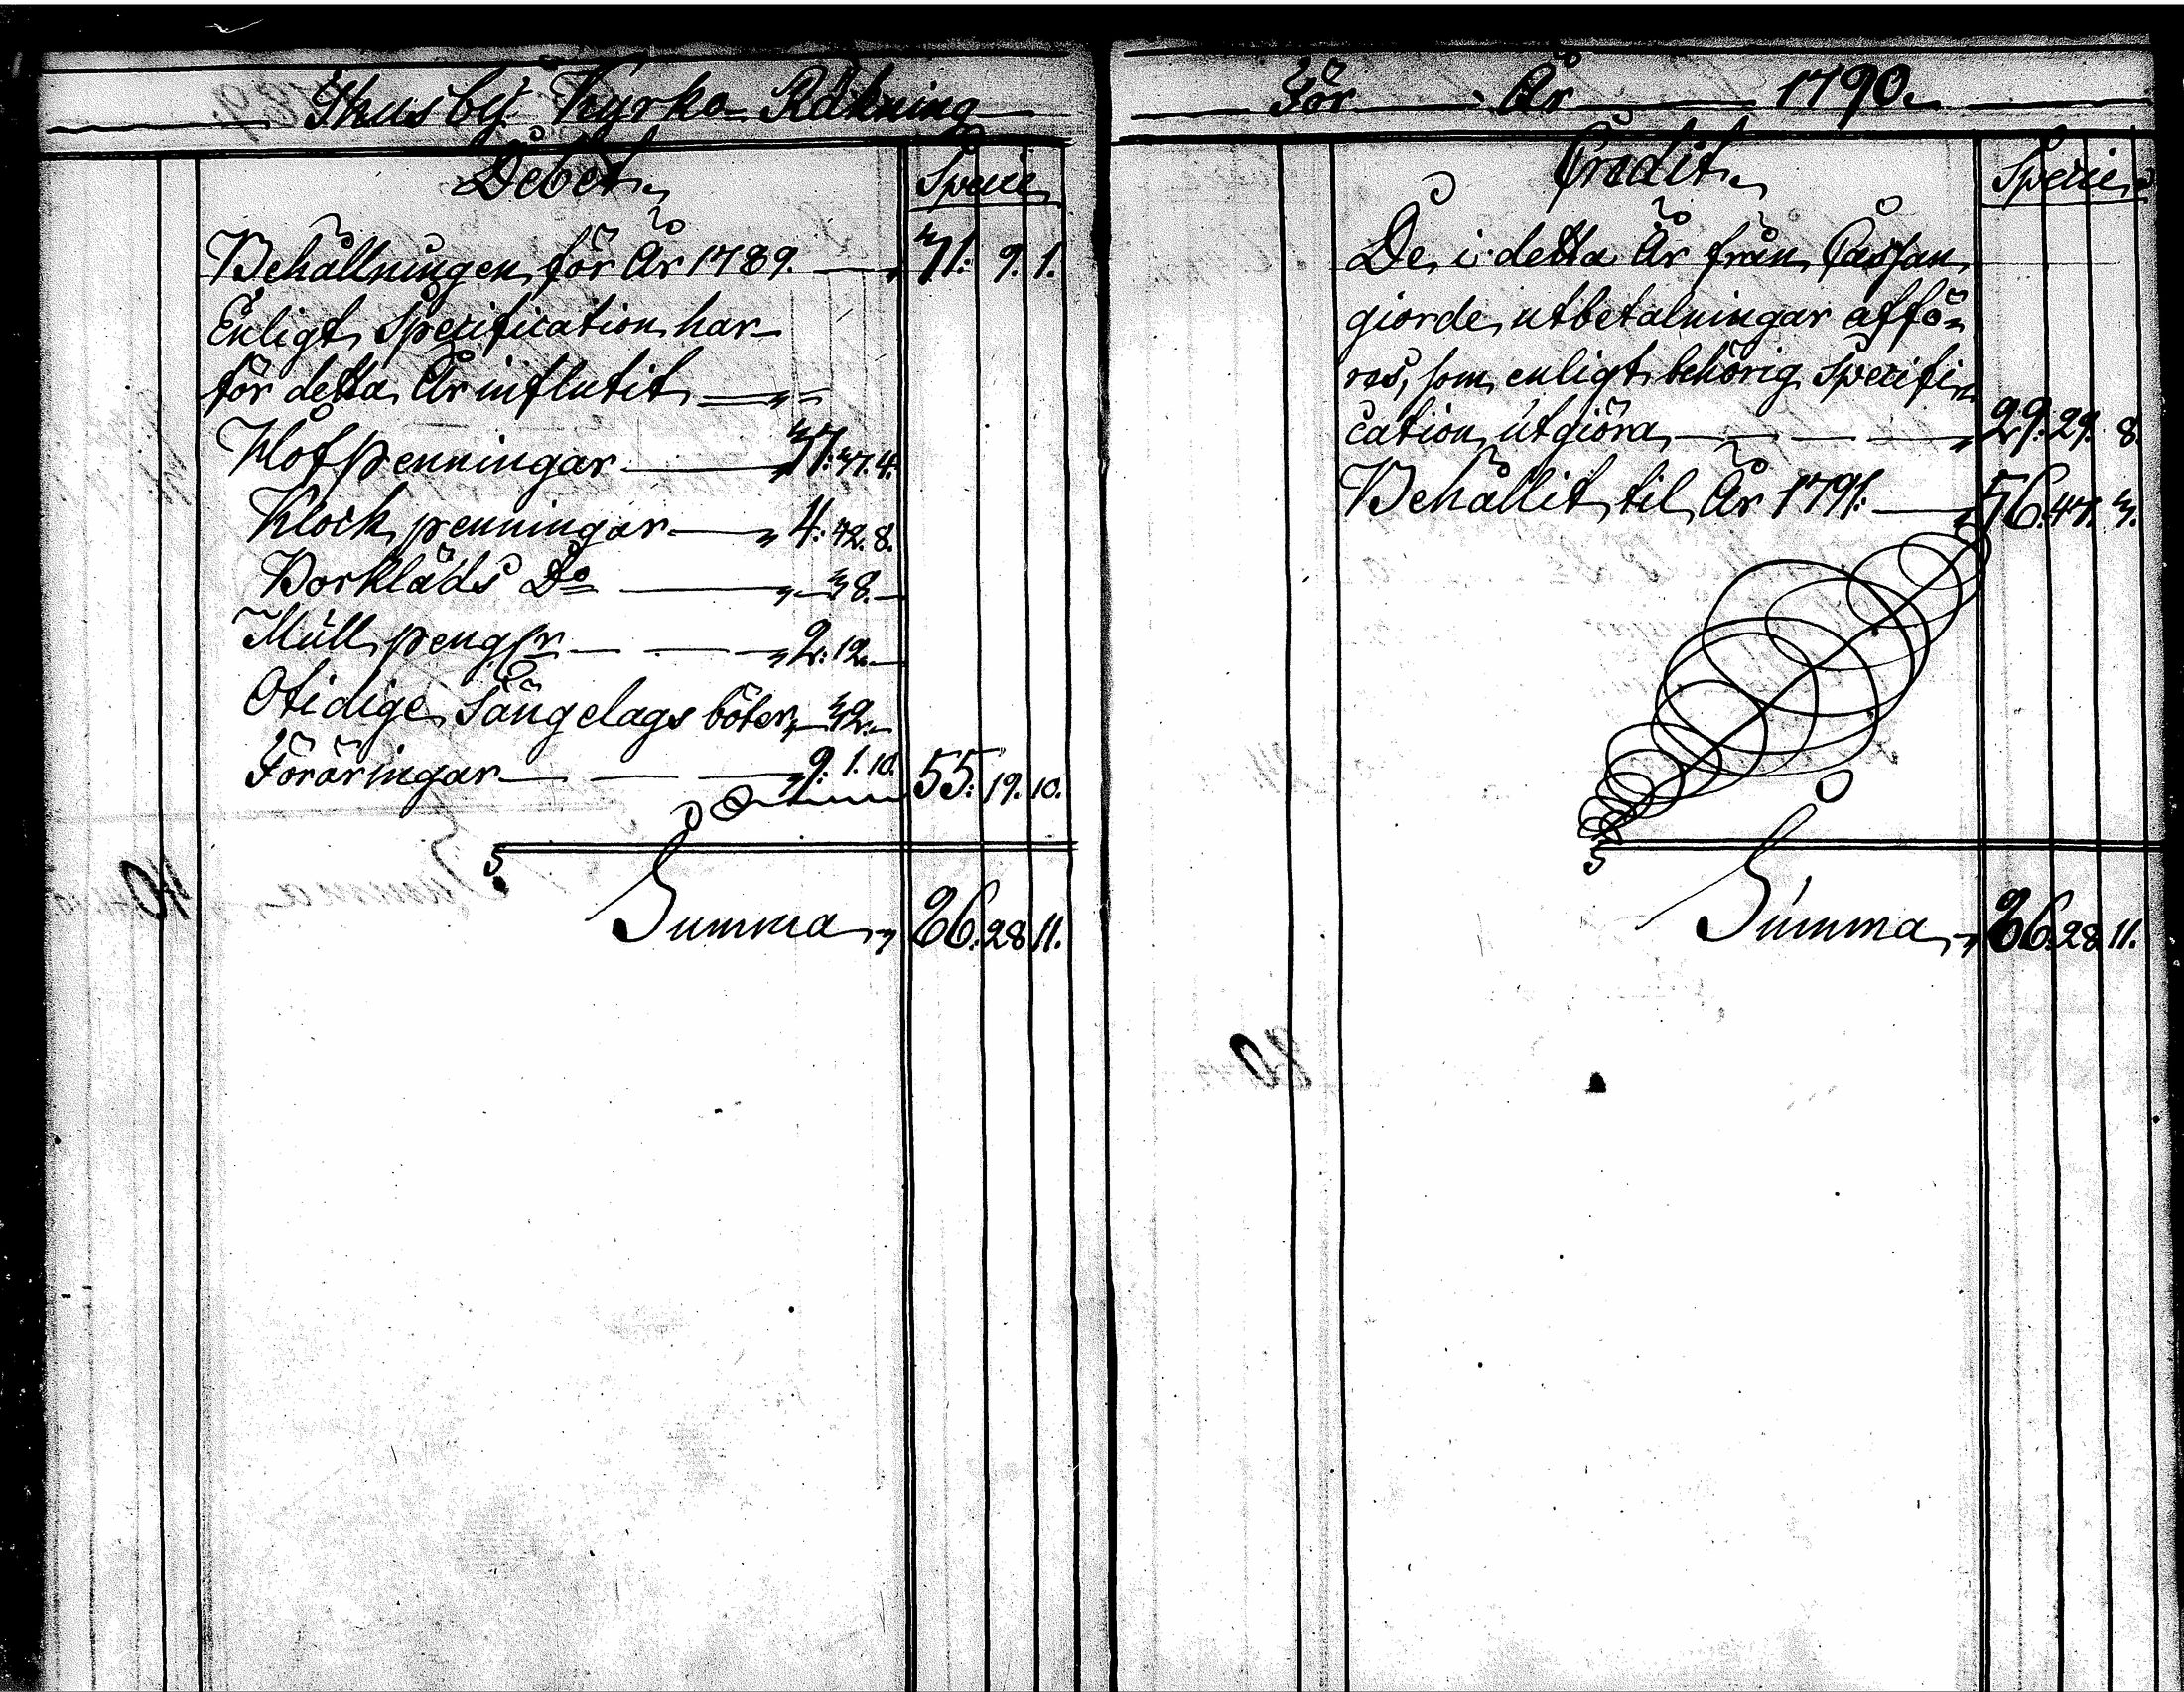 Thusby Kyrko Räkning
Debet. Specie
Behållningen för År 1789. 31: 9. 1.
Enligt Specification har
för detta År influtit
Håfpenningar 37: 37. 4.
Klock penningar 4: 42. 8.
Bårkläds Do 38.
Mull peng:r 2: 12.
Otidige Sängelags böter 32.
Föräringar 9: 1. 10. 55: 19. 10.
Summa 86. 28 11.
För År 1790.
Credit. Specie
De i detta År från Cassan
giorde utbetalningar affö-
ras, som enligt behörig Specifi-
cation utgiöra 29: 29. 8.
Behållit til År 1791. 56. 47. 3.
Summa 86. 28 11.